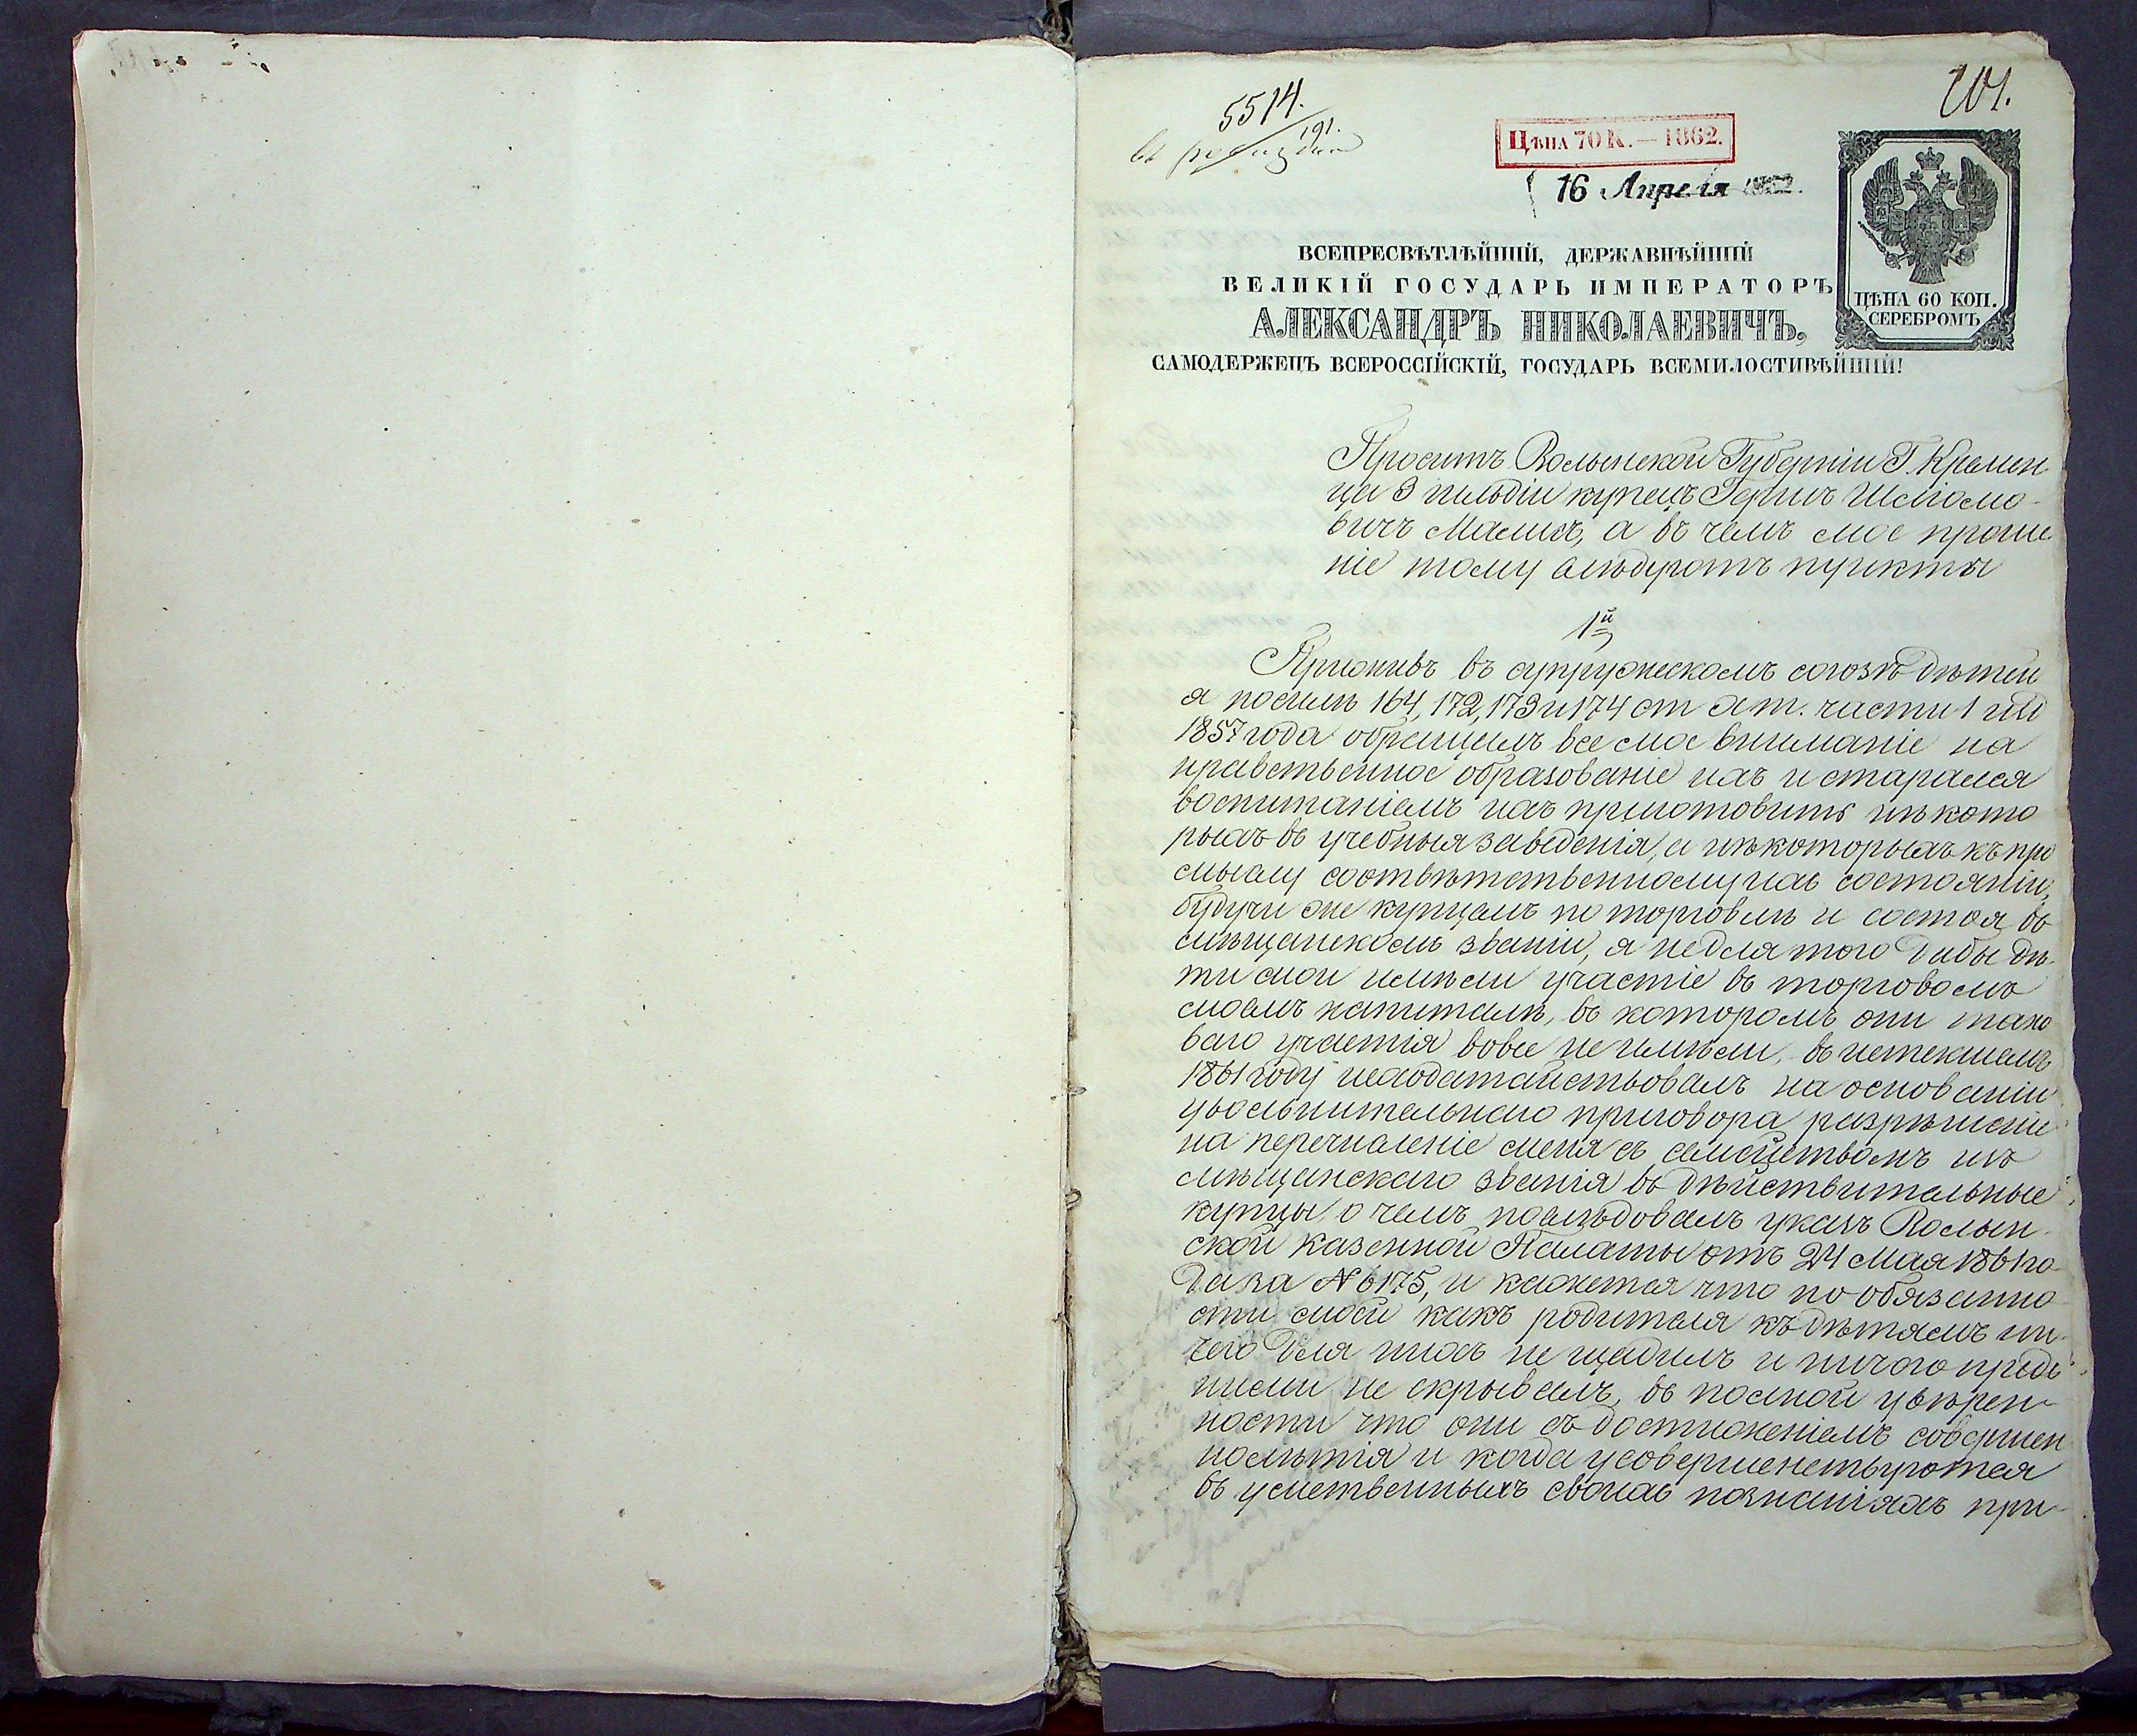 5514.
191.
въ
201.
Цѣна 70 К. — 1862.
16 Апреля 1862.
ВСЕПРЕСВѢТЛѢЙШІЙ, ДЕРЖАВНѢЙШІЙ
ВЕЛИКІЙ ГОСУДАРЬ ИМПЕРАТОРЪ
АЛЕКСАНДРЪ НИКОЛАЕВИЧЪ,
САМОДЕРЖЕЦЪ ВСЕРОССІЙСКІЙ, ГОСУДАРЬ ВСЕМИЛОСТИВѢЙШІЙ!
ЦѢНА 60 КОП.
СЕРЕБРОМЪ
Проситъ Волынской Губерніи Г. Кремен
ца 3 гильдіи купецъ Гершъ Шліомо-
вичъ Малисъ, а въ чемъ мое проше
ніе тому слѣдуютъ пункты
1й
Приживъ въ супружескомъ союзѣ дѣтей
я по силѣ 164, 172, 173 и 174 ст. Х т. части 1 изд
1857 года обращалъ все мое вниманіе на
нравственное образованіе ихъ и старался
воспитаніемъ ихъ приготовить нѣкото
рыхъ въ учебныя заведенія, а нѣкоторыхъ къ про
мыслу соотвѣтственному ихъ состоянію,
будучи же купцемъ по торговлѣ и состоя въ
мѣщанскомъ званіи, я не для того дабы дѣ-
ти мои имѣли участіе въ торговомъ
моемъ капиталѣ, въ которомъ они тако
ваго участія вовсе не имѣли, въ истекшемъ
1861 году исходатайствовалъ на основаніи
увольнительнаго приговора разрѣшеніе
на перечисленіе меня съ семействомъ изъ
мѣщанскаго званія въ дѣйствительные
купцы, о чемъ послѣдовалъ указъ Волын-
ской казенной Палаты отъ 24 Мая 1861 го-
да за № 6175, и кажется что по обязанно
сти моей какъ родителя къ дѣтямъ ни-
чего для нихъ не щадилъ и ничего предъ
ними не скрывалъ, въ полной увѣрен-
ности что они съ достиженіемъ совершен
нолѣтія и когда усовершенствуются
въ умственныхъ своихъ познаніяхъ при-